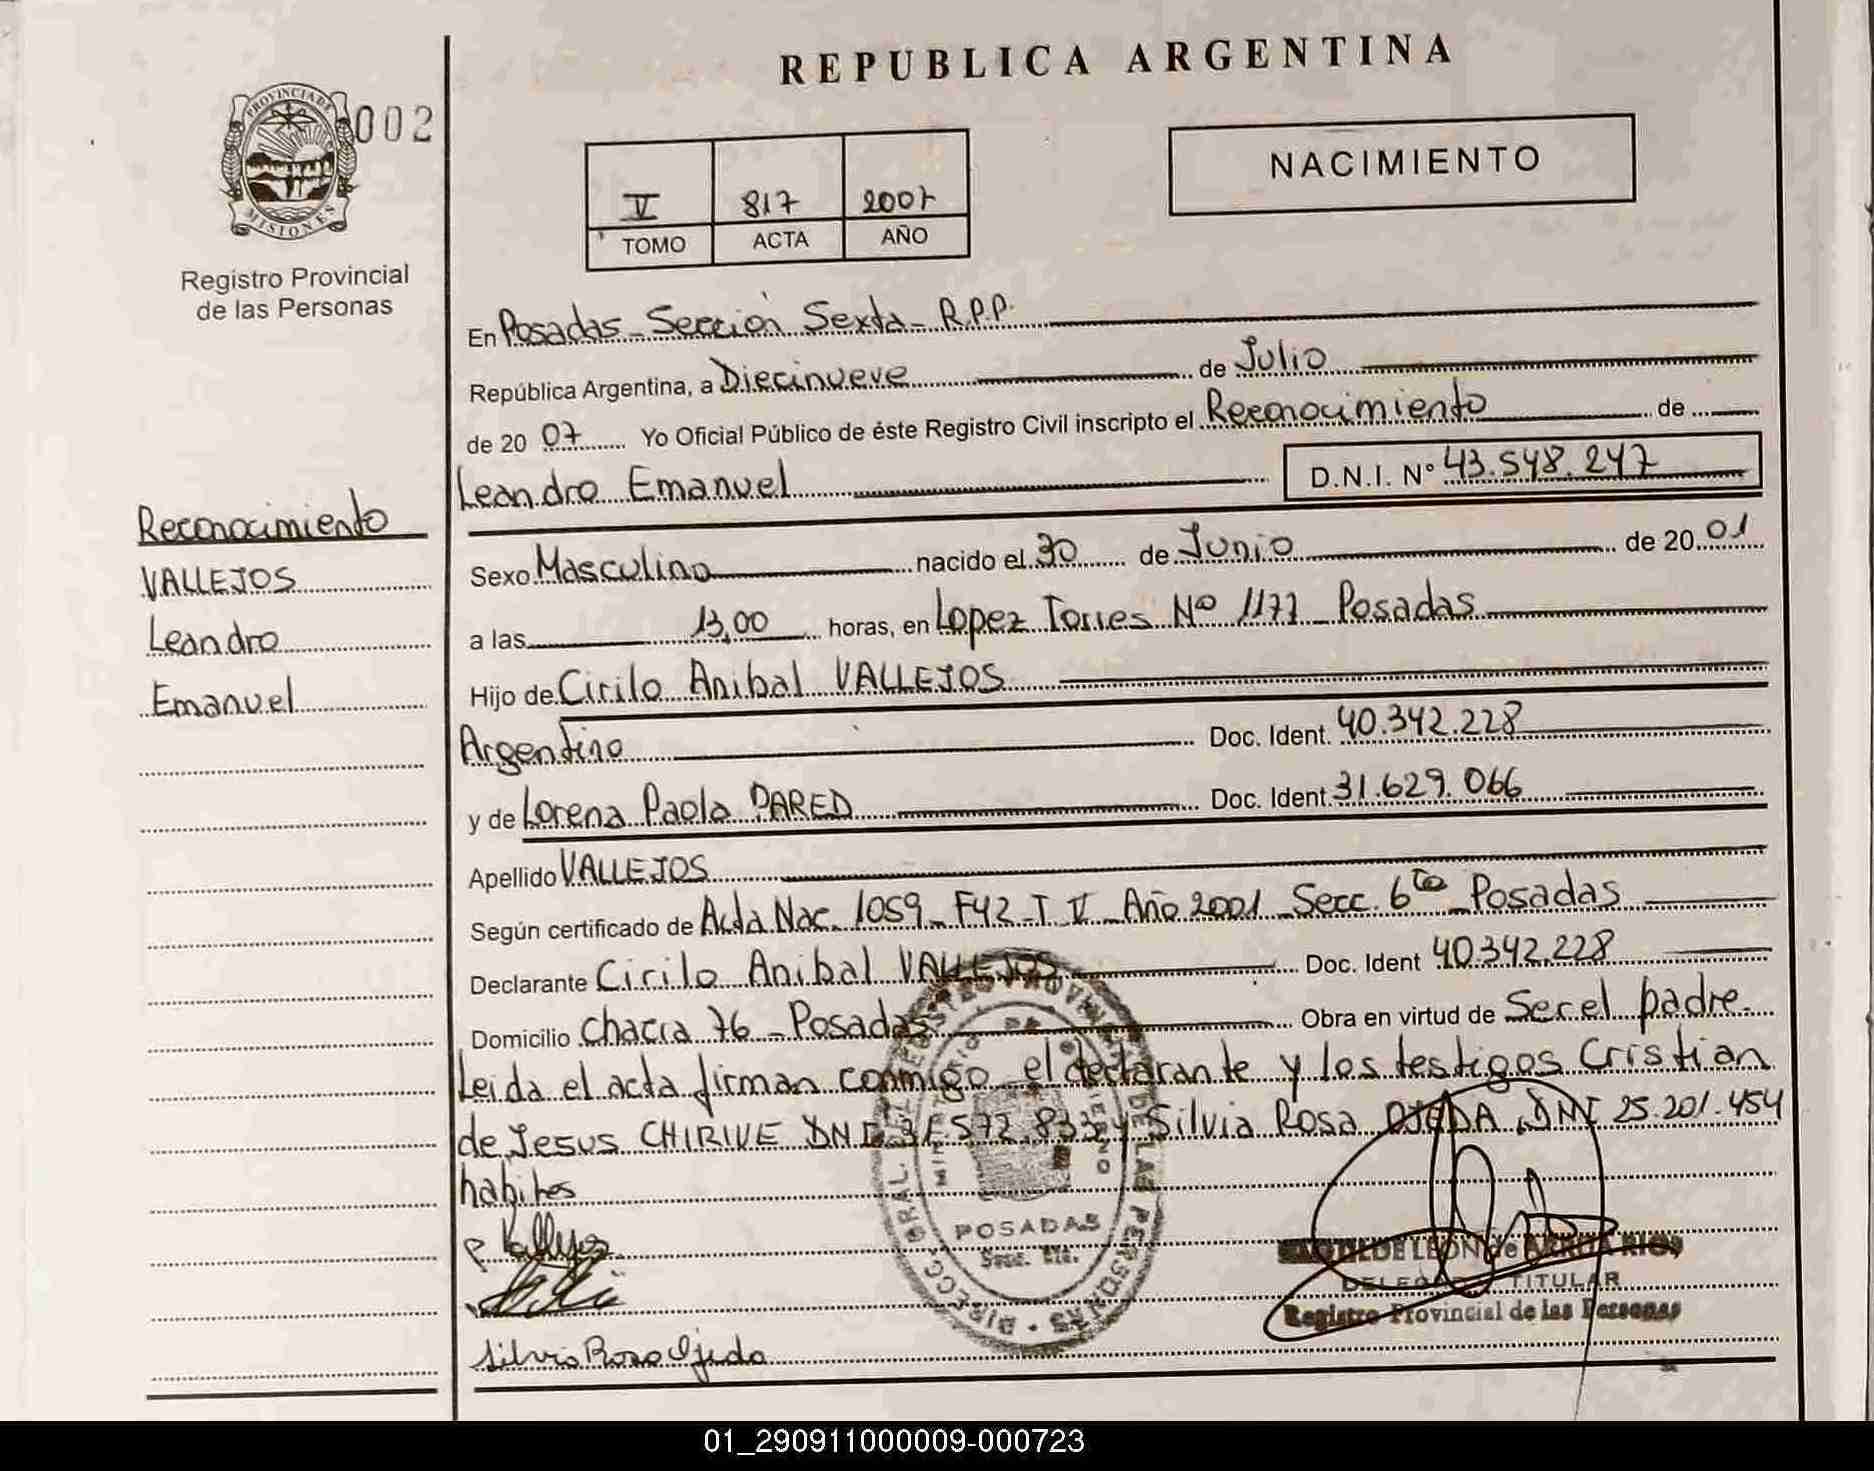 REPUBLICA ARGENTINA
PROVINCIA DE
MISIONES
002
Registro Provincial
de las Personas
V 817 2007
TOMO ACTA AÑO
NACIMIENTO
En Posadas - Sección Sexta - R.P.P.
República Argentina, a Diecinueve de Julio
de 20 07 Yo Oficial Público de éste Registro Civil inscripto el Reconocimiento de
Leandro Emanuel D.N.I. Nº 43.548.247
Reconocimiento
VALLEJOS
Leandro
Emanuel
Sexo Masculino nacido el 30 de Junio de 20 01
a las 13,00 horas, en Lopez Torres Nº 1177 Posadas
Hijo de Cirilo Anibal VALLEJOS
Argentino Doc. Ident. 40.342.228
y de Lorena Paola PARED Doc. Ident. 31.629.066
Apellido VALLEJOS
Según certificado de Acta Nac. 1059 - F42 - T V - Año 2001 - Secc. 6ta - Posadas
Declarante Cirilo Anibal VALLEJOS Doc. Ident 40.342.228
Domicilio Chacra 76 - Posadas Obra en virtud de Ser el padre.
Leida el acta firman conmigo el declarante y los testigos Cristian
de Jesus CHIRIVE DNI y Silvia Rosa OJEDA DNI 25.201.454
habiles
POSADAS
Secc.
DE LEON de
DELEGADO TITULAR
Registro Provincial de las Personas
Silvia Rosa Ojeda
01_290911000009-000723